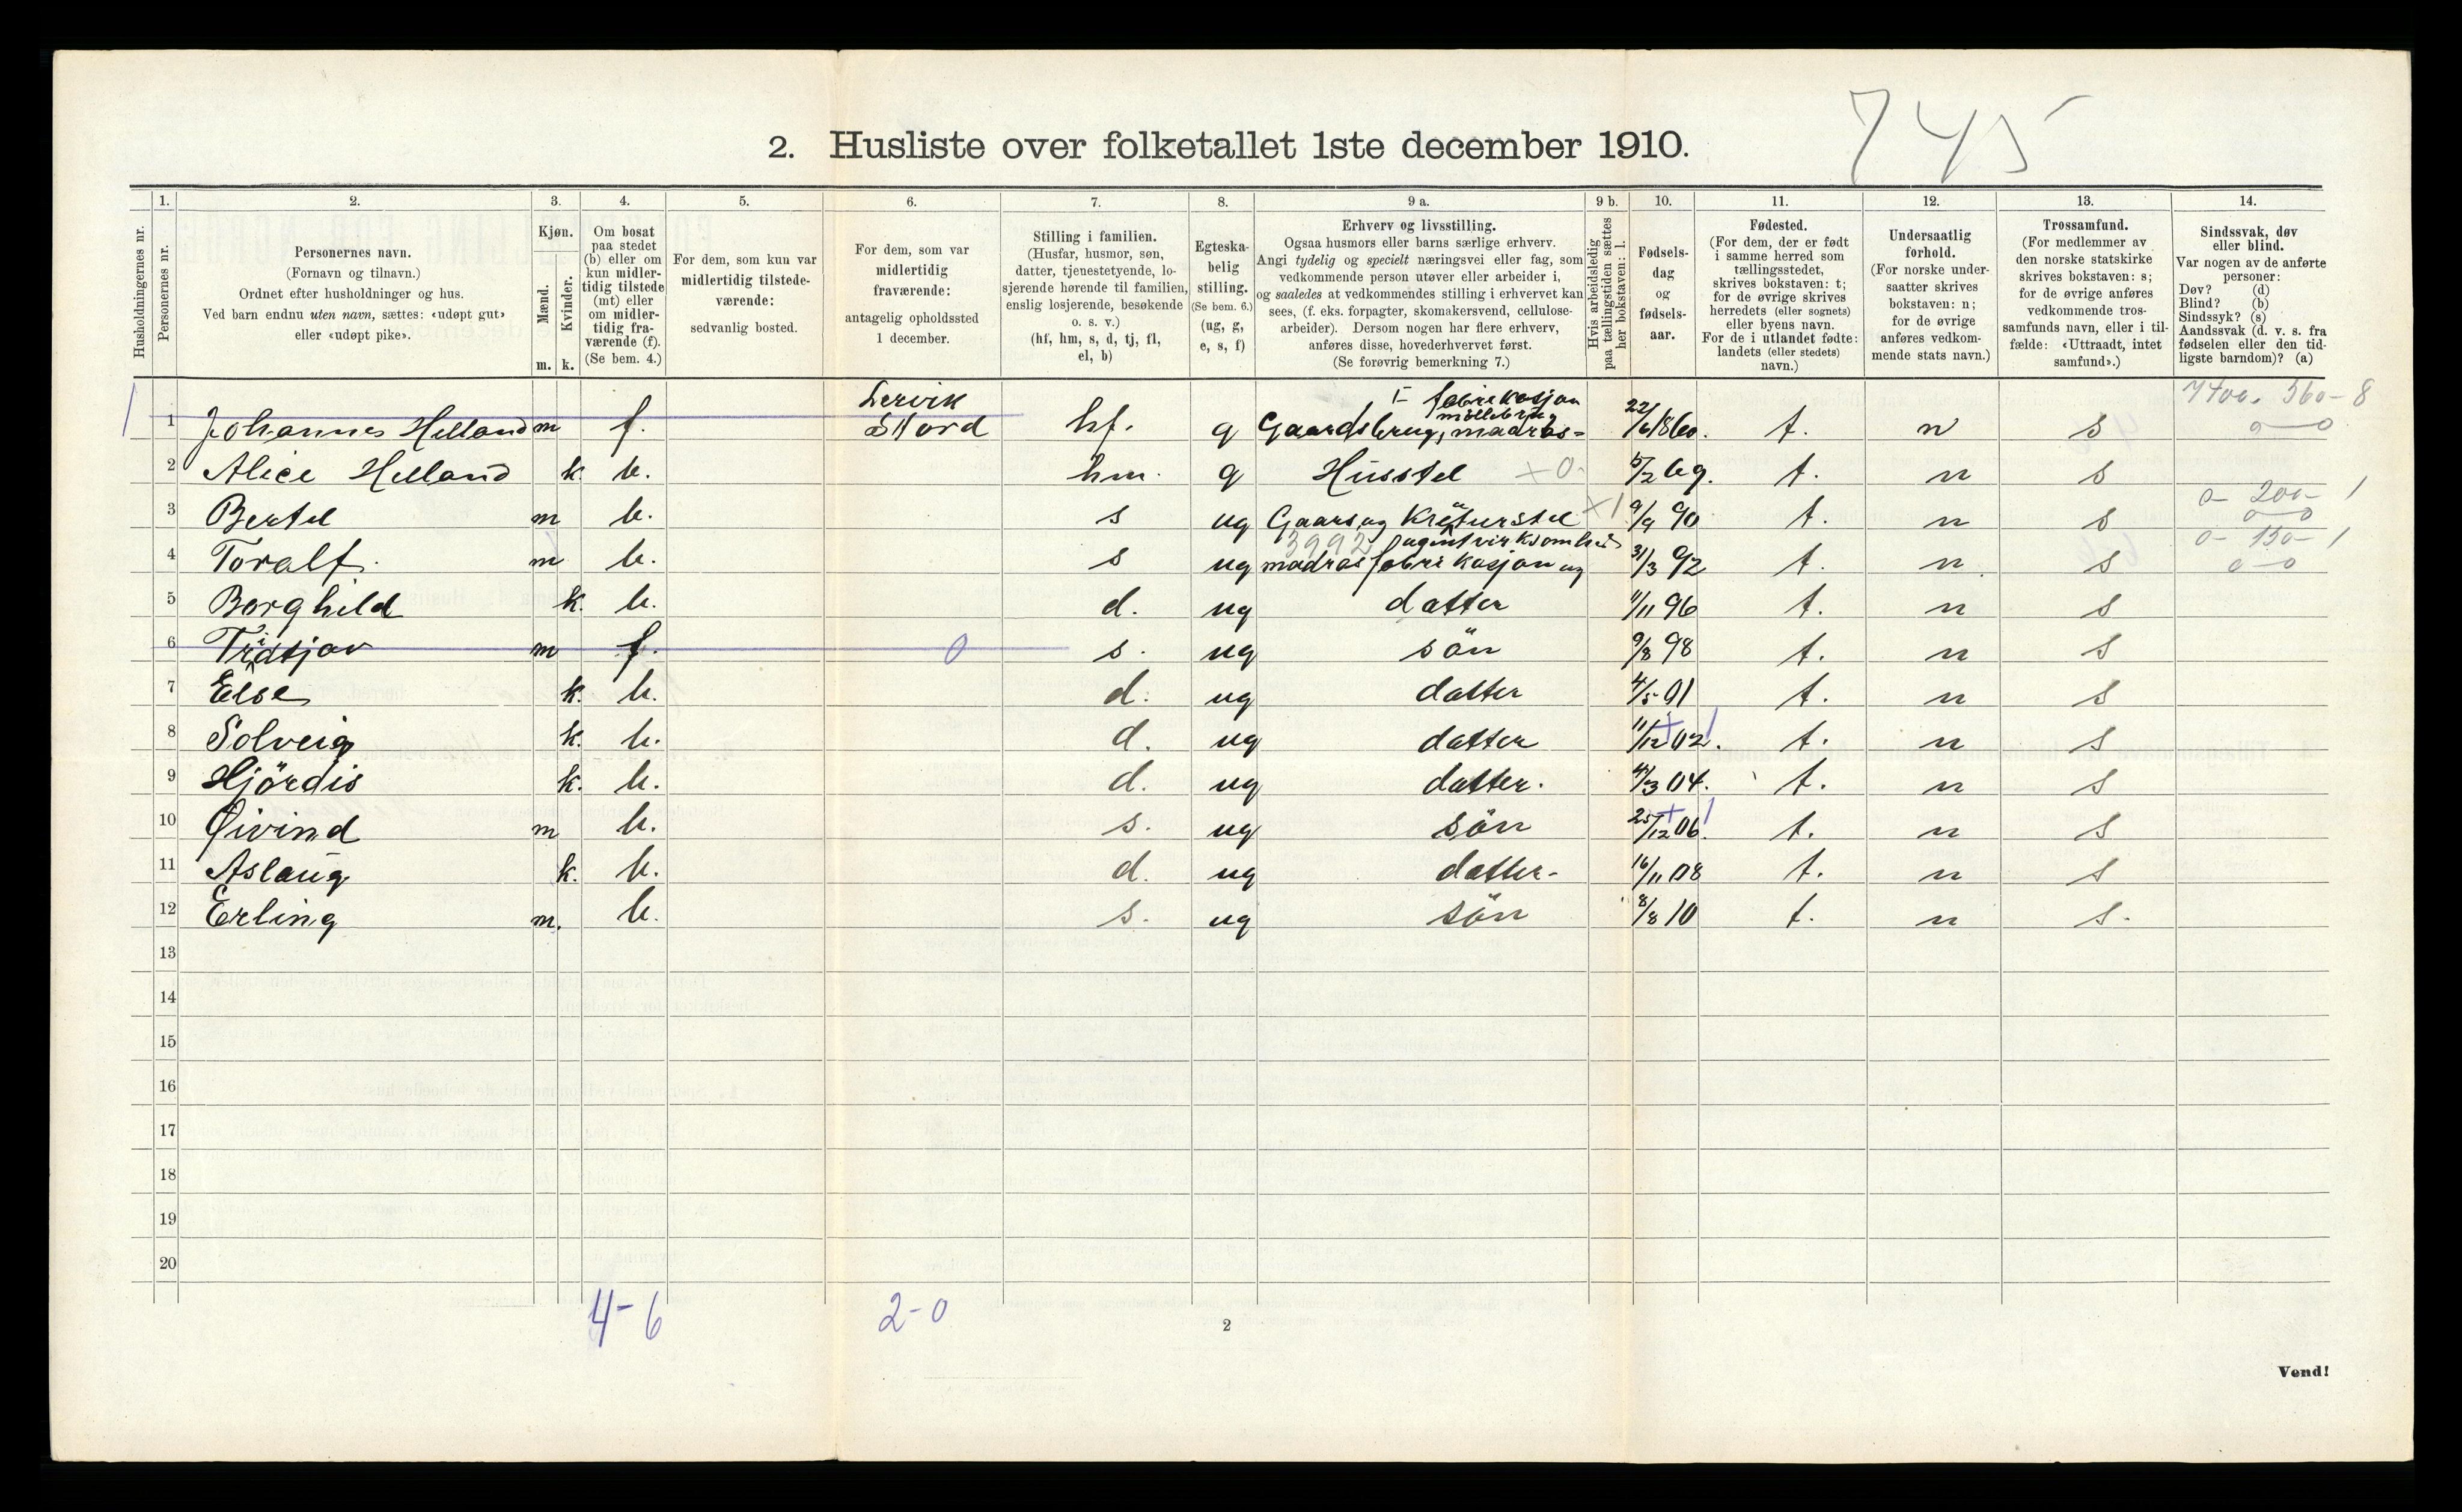 745
2. Husliste over folketallet 1ste december 1910.
Husholdningernes nr.
1. Personernes nr.
2. Personernes navn. (Fornavn og tilnavn.) Ordnet efter husholdninger og hus. Ved barn endnu uten navn, sættes: «udøpt gut» eller «udøpt pike».
3. Kjøn. Mænd. m. Kvinder. k.
4. Om bosat paa stedet (b) eller om kun midlertidig tilstede (mt) eller om midlertidig fraværende (f). (Se bem. 4.)
5. For dem, som kun var midlertidig tilstedeværende: sedvanlig bosted.
6. For dem, som var midlertidig fraværende: antagelig opholdssted 1 december.
7. Stilling i familien. (Husfar, husmor, søn, datter, tjenestetyende, losjerende hørende til familien, enslig losjerende, besøkende o. s. v.) (hf, hm, s, d, tj, fl, el, b)
8. Egteskabelig stilling. (Se bem. 6.) (ug, g, e, s, f)
9 a. Erhverv og livsstilling. Ogsaa husmors eller barns særlige erhverv. Angi tydelig og specielt næringsvei eller fag, som vedkommende person utøver eller arbeider i, og saaledes at vedkommendes stilling i erhvervet kan sees, (f. eks. forpagter, skomakersvend, cellulosearbeider). Dersom nogen har flere erhverv, anføres disse, hovederhvervet først. (Se forøvrig bemerkning 7.)
9 b. Hvis arbeidsledig paa tællingstiden sættes her bokstaven: l.
10. Fødselsdag og fødselsaar.
11. Fødested. (For dem, der er født i samme herred som tællingsstedet, skrives bokstaven: t; for de øvrige skrives herredets (eller sognets) eller byens navn. For de i utlandet fødte: landets (eller stedets) navn.)
12. Undersaatlig forhold. (For norske undersaatter skrives bokstaven: n; for de øvrige anføres vedkommende stats navn.)
13. Trossamfund. (For medlemmer av den norske statskirke skrives bokstaven: s; for de øvrige anføres vedkommende trossamfunds navn, eller i tilfælde: «Uttraadt, intet samfund».)
14. Sindssvak, døv eller blind. Var nogen av de anførte personer: Døv? (d) Blind? (b) Sindssyk? (s) Aandssvak (d. v. s. fra fødselen eller den tidligste barndom)? (a)
1 1 Johannes Helland m f. Lervik Stord hf. g Gaardsbrug, møllebrug madras= fabrikasjon 22/6 1860. t. n s 7400. 360-8 0-0
2 Alice Helland k. b. hm. g Husstel +0- 5/2 69. t. n s
3 Bertel m b. s ug Gaars og Kräturstel ×1 9/9 90 t. n s 0- 200- 1 0-0
4 Toralf. m b. s ug 3992 madras fabrikasjon og agentvirksomhed 31/3 92 t. n. s 0- 150- 1 0-0
5 Borghild k. b. d. ug datter 11/11 96 t. n s
6 Tridtjov m f. 0 s. ug sön 9/8 98 t. n s
7 Else k. b. d. ug datter 4/5 01 t. n s
8 Solveig k. b. d. ug datter 11/12 02. + 1 t. n s
9 Hjördis k. b. d. ug datter. 4/3 04. t. n s
10 Øivind m b. s. ug sön 25/12 06. + 1 t. n s
11 Aslaug k. b. d. ug datter- 16/11 08 t. n s
12 Erling m. b. s. ug sön 8/8 10 t. n s.
13
14
15
16
17
18
19
20
4-6 2-0
2
Vend!